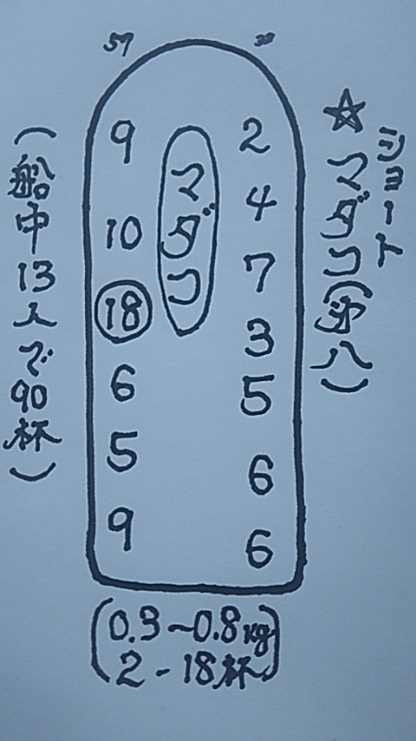 ショート
☆マダコ(㐧八)
57
33
マダコ
9
10
18
6
5
9
2
4
7
3
5
6
6
(船中13人で90杯)
(0.3~0.8kg
2-18杯)